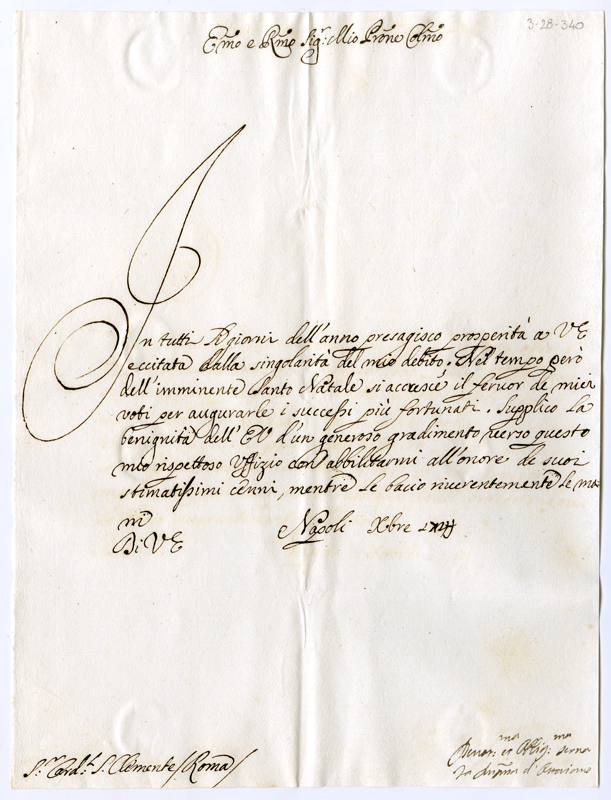 3-28-340
Emo e Rmo Sigr: Mio Prone Colmo
In tutti I giorni dell'anno presagisco prosperità a VE
eccitata dalla singolarità del mio debito. Nel tempo però
dell'imminente Santo Natale si accresce il feruor de miei
voti per augurarle i successi più fortunati. Supplico la
benignità dell'EV d'un generoso gradimento verso questo
mio rispettoso Vffizio con abbilitarmi all'onore de suoi
stimatissimi cenni, mentre le bacio riuerentemente le ma
ni
Di VE Napoli Xbre
Sr. Card.l S. Clemente / Roma /
Deuma et Obligma serua